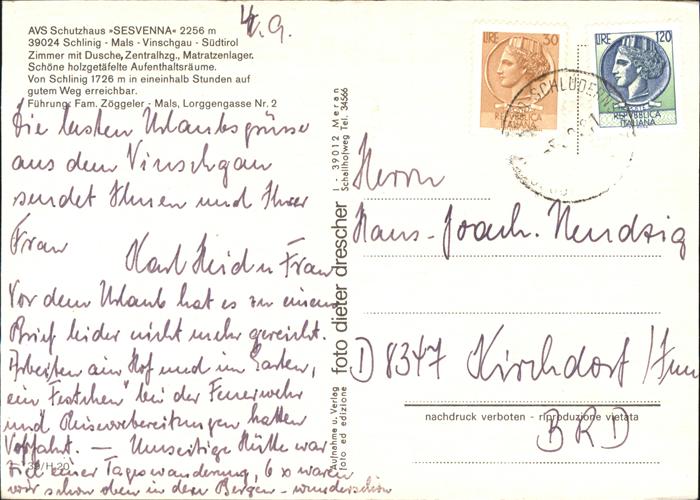 4.9.
AVS Schutzhaus »SESVENNA« 2256 m
39024 Schlinig - Mals - Vinschgau - Südtirol
Zimmer mit Dusche, Zentralhzg., Matratzenlager.
Schöne holzgetäfelte Aufenthaltsräume.
Von Schlinig 1726 m in eineinhalb Stunden auf
gutem Weg erreichbar.
Führung: Fam. Zöggeler - Mals, Lorggengasse Nr. 2
Die besten Urlaubsgrüsse
aus dem Vinschgau
sendet Ihnen und Ihrer
Frau
Karl Heid u Frau
Vor dem Urlaub hat es zu einem
Brief leider nicht mehr gereicht.
Arbeiten am Hof und im Garten,
ein „Festchen" bei der Feuerwehr
und Reisevorbereitungen hatten
Vorfahrt. — Umseitige Hütte war
Ziel einer Tageswanderung, 6 x waren
wir schon oben in den Bergen - wunderschön
39/H 20
Aufnahme u. Verlag
foto ed edizione
foto dieter drescher
I - 39012 Meran
Schallhofweg Tel. 34566
LIRE 50
REPVBBLICA
ITALIANA
LIRE 120
POSTE
REPVBBLICA
ITALIANA
SCHLUDERNS
Herrn
Hans-Joach. Neudzig
D 8347 Kirchdorf/Inn
BRD
nachdruck verboten - riproduzione vietata